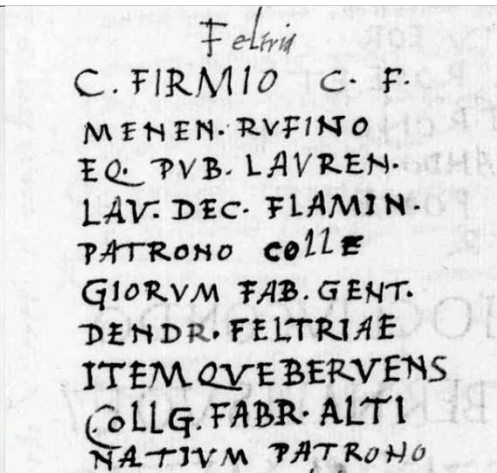 Feltria
C. FIRMIO C. F.
MENEN. RVFINO
EQ. PVB. LAVREN.
LAV. DEC. FLAMIN.
PATRONO COLLE
GIORVM FAB. GENT.
DENDR. FELTRIAE
ITEMQVE BERVENS
COLLG. FABR. ALTI
NATIVM PATRONO